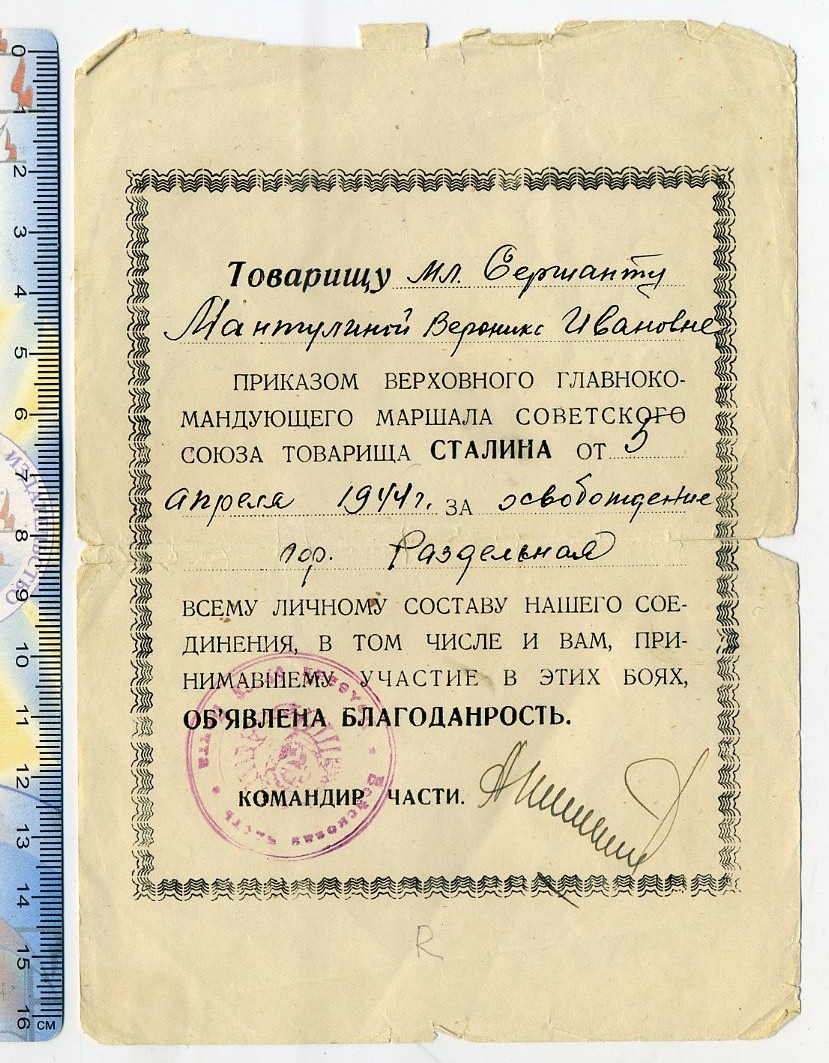 Товарищу мл. Сержанту
Мантулиной Веронике Ивановне
ПРИКАЗОМ ВЕРХОВНОГО ГЛАВНОКО-
МАНДУЮЩЕГО МАРШАЛА СОВЕТСКОГО
СОЮЗА ТОВАРИЩА СТАЛИНА ОТ 5
апреля 1944 г. ЗА освобождение
гор. Раздельная
ВСЕМУ ЛИЧНОМУ СОСТАВУ НАШЕГО СОЕ-
ДИНЕНИЯ, В ТОМ ЧИСЛЕ И ВАМ, ПРИ-
НИМАВШЕМУ УЧАСТИЕ В ЭТИХ БОЯХ,
ОБ'ЯВЛЕНА БЛАГОДАНРОСТЬ.
КОМАНДИР ЧАСТИ.
Войсковая часть
R
0
1
2
3
4
5
6
7
8
9
10
11
12
13
14
15
16 СМ
ИЗДАТЕЛЬСТВО